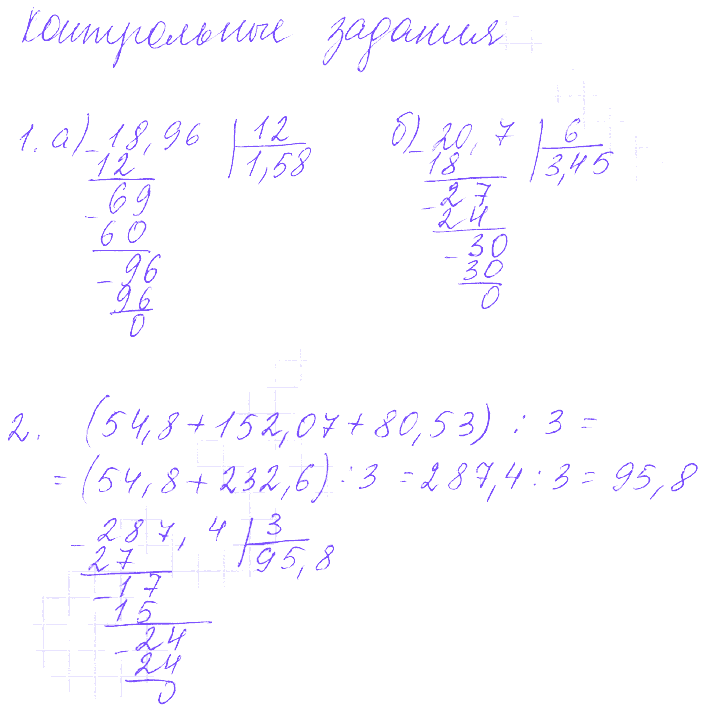 Контрольные задания
1. а) -18,96 | 12    б) -20,7 | 6
12    1,58    18    3,45
-69    -27
60    24
-96    -30
96    30
0    0
2. (54,8+152,07+80,53) : 3 =
= (54,8+232,6) : 3 = 287,4 : 3 = 95,8
-287,4 | 3
27    95,8
-17
15
-24
24
0